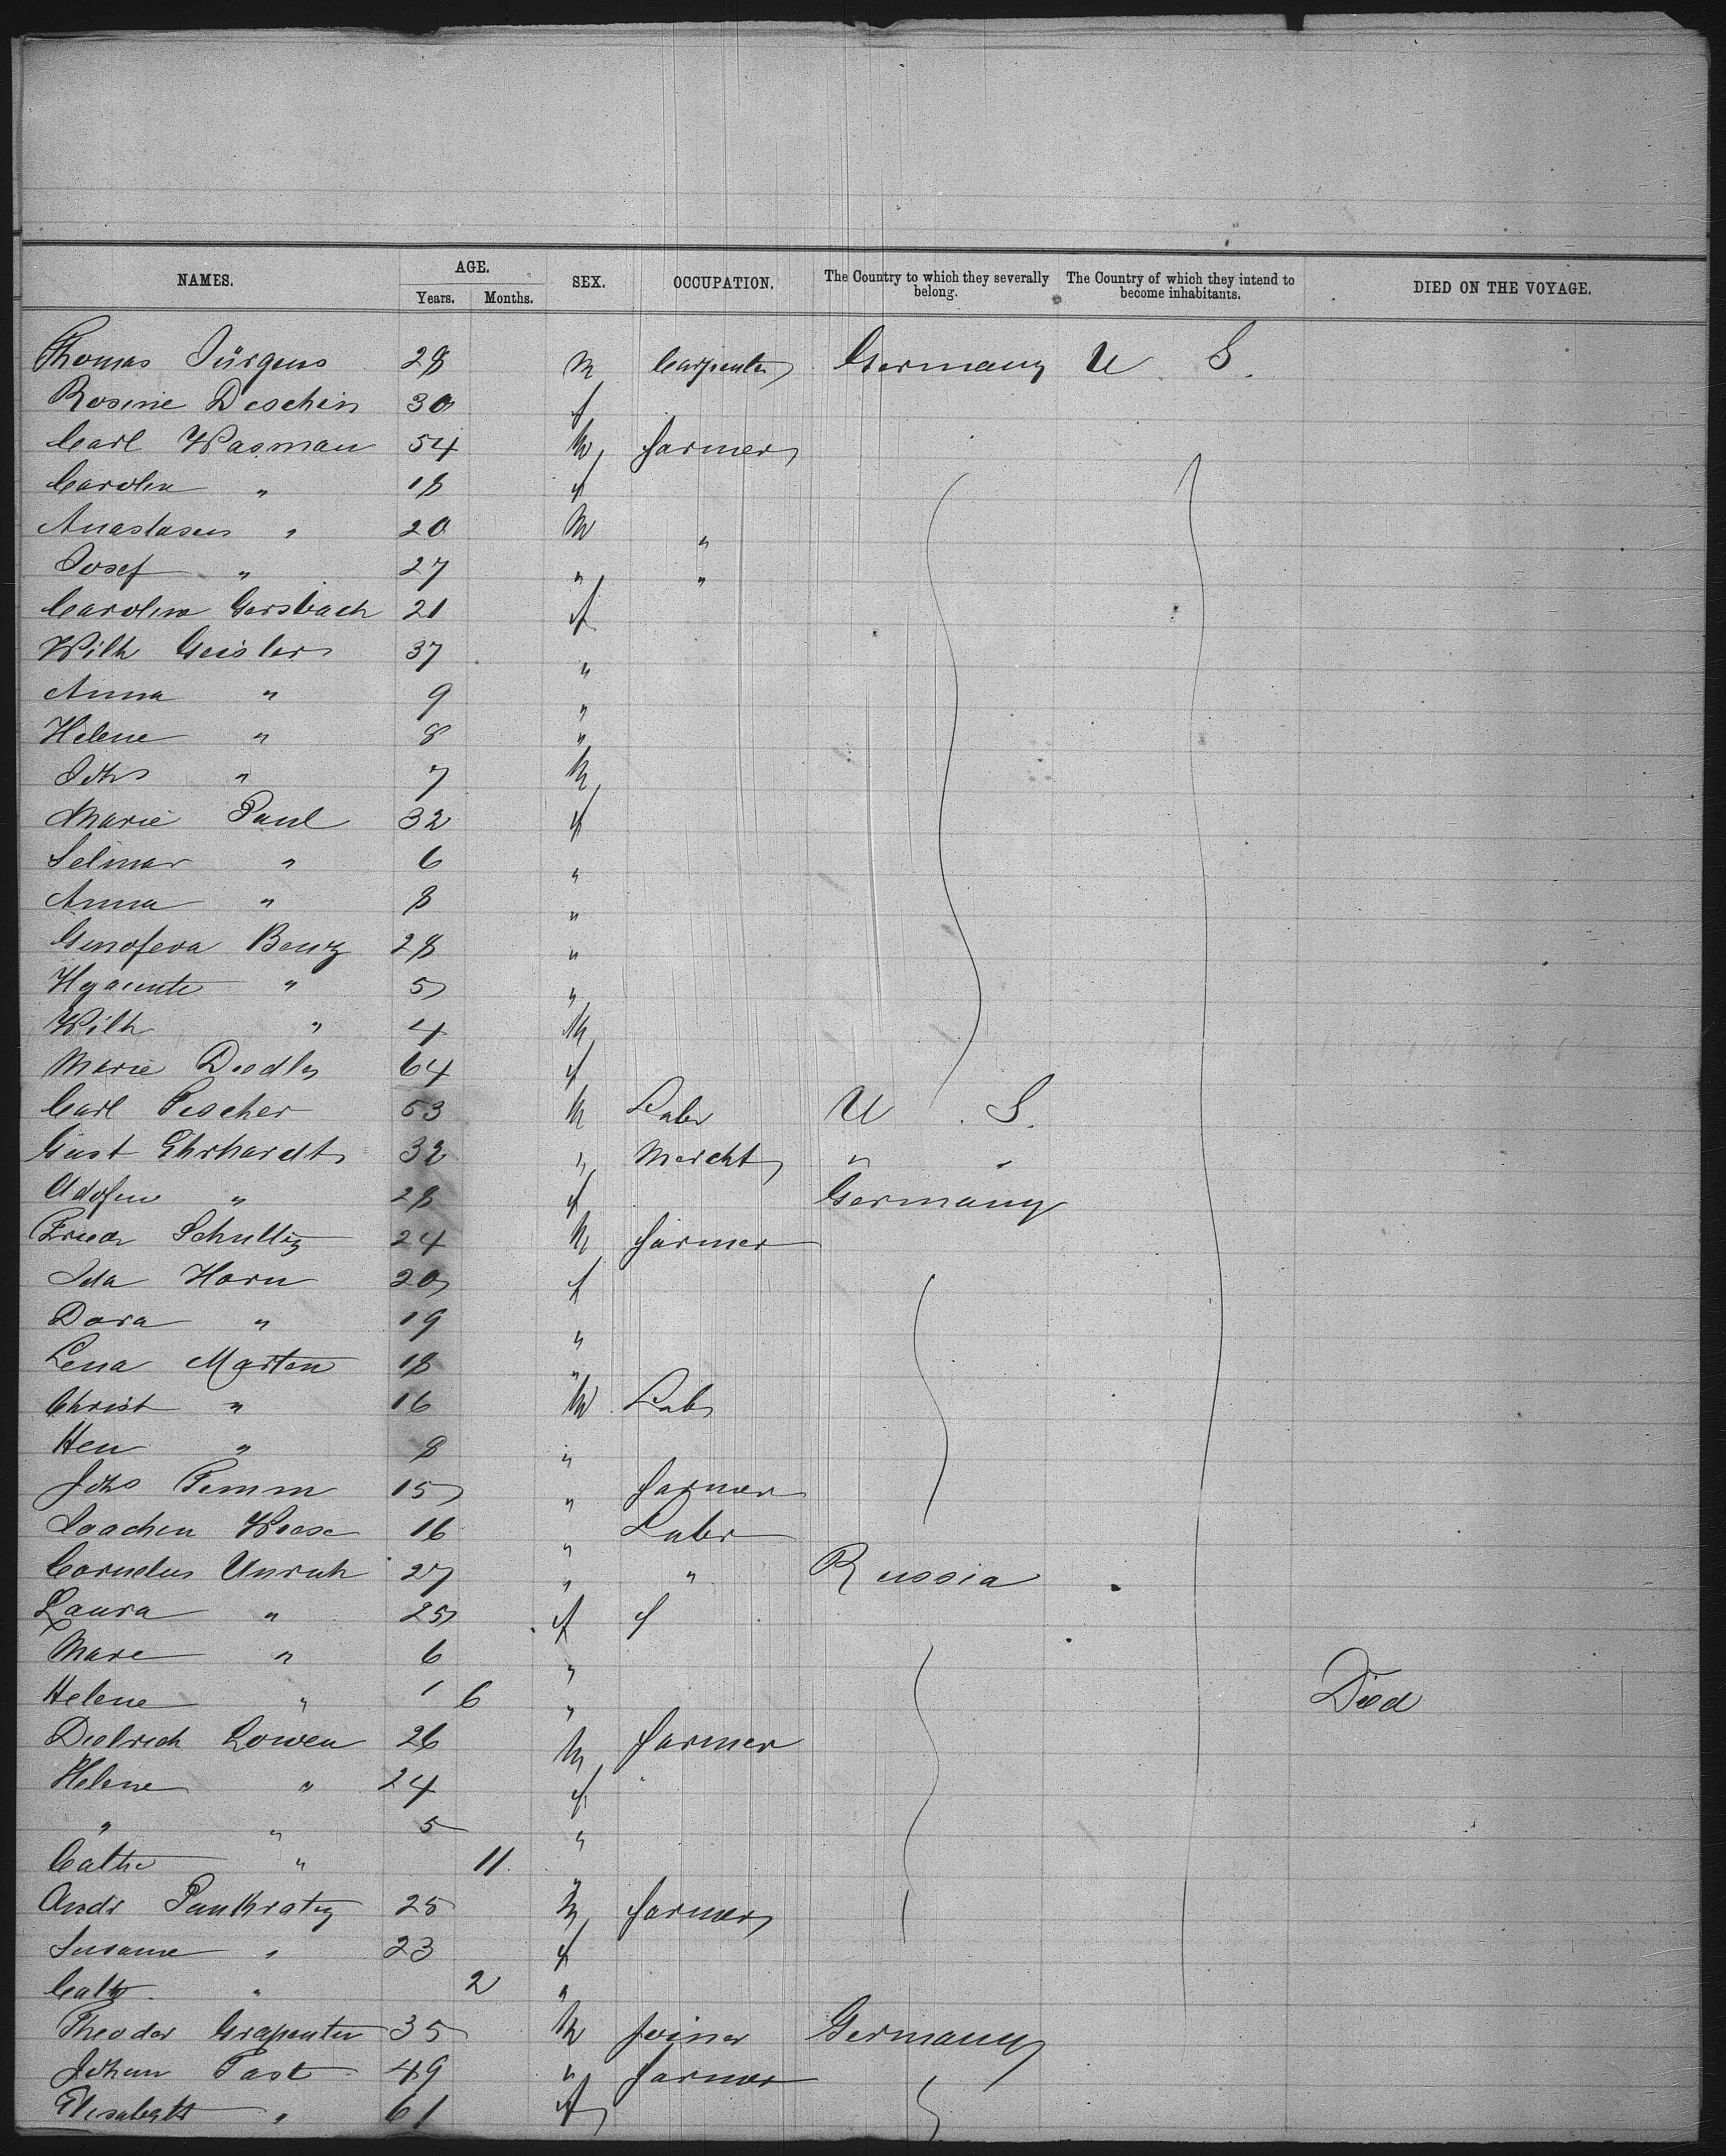 NAMES. AGE. Years. Months. SEX. OCCUPATION. The Country to which they severally belong. The Country of which they intend to become inhabitants. DIED ON THE VOYAGE.
Thomas Jürgens 28 m Carpenter Germany U. S.
Rosine Deschin 30 f
Carl Wasman 54 m farmer
Carolin " 18 f
Anastasius " 20 m "
Josef " 27 " "
Carolina Gersbach 21 f
Wilh Geisler 37 "
Anna " 9 "
Helene " 8 "
Johs " 7 m
Marie Paul 32 f
Selmar " 6 "
Anna " 8 "
Genofeva Benz 28 "
Hyacinte " 5 "
Wilh " 4 m
Marie Dodler 64 f
Carl Tescher 53 m Labr U. S.
Gust Ehrhardt 32 " Mercht " "
" 28 f Germany
Friedr Schultz 24 m farmer
Ida Horn 20 f
Dora " 19 "
Lena Marten 18 "
Christ " 16 m Lab
Hen " 8 "
Johs Timm 15 " farmer
Joachim Weese 16 " Labr
Cornelius Unruh 27 " " Russia
Laura " 25 f f
Mare " 6 "
Helene " 1 6 " Died
Dietrich Lowen 26 m farmer
Helene " 24 f
" " 5 "
Cathe " 11 "
Andr Pankratz 25 m farmer
Susane " 23 f
Cath " 2 "
Theodor Grapentin 35 m Joiner Germany
Johann Past 49 " farmer
Elisabeth " 61 f